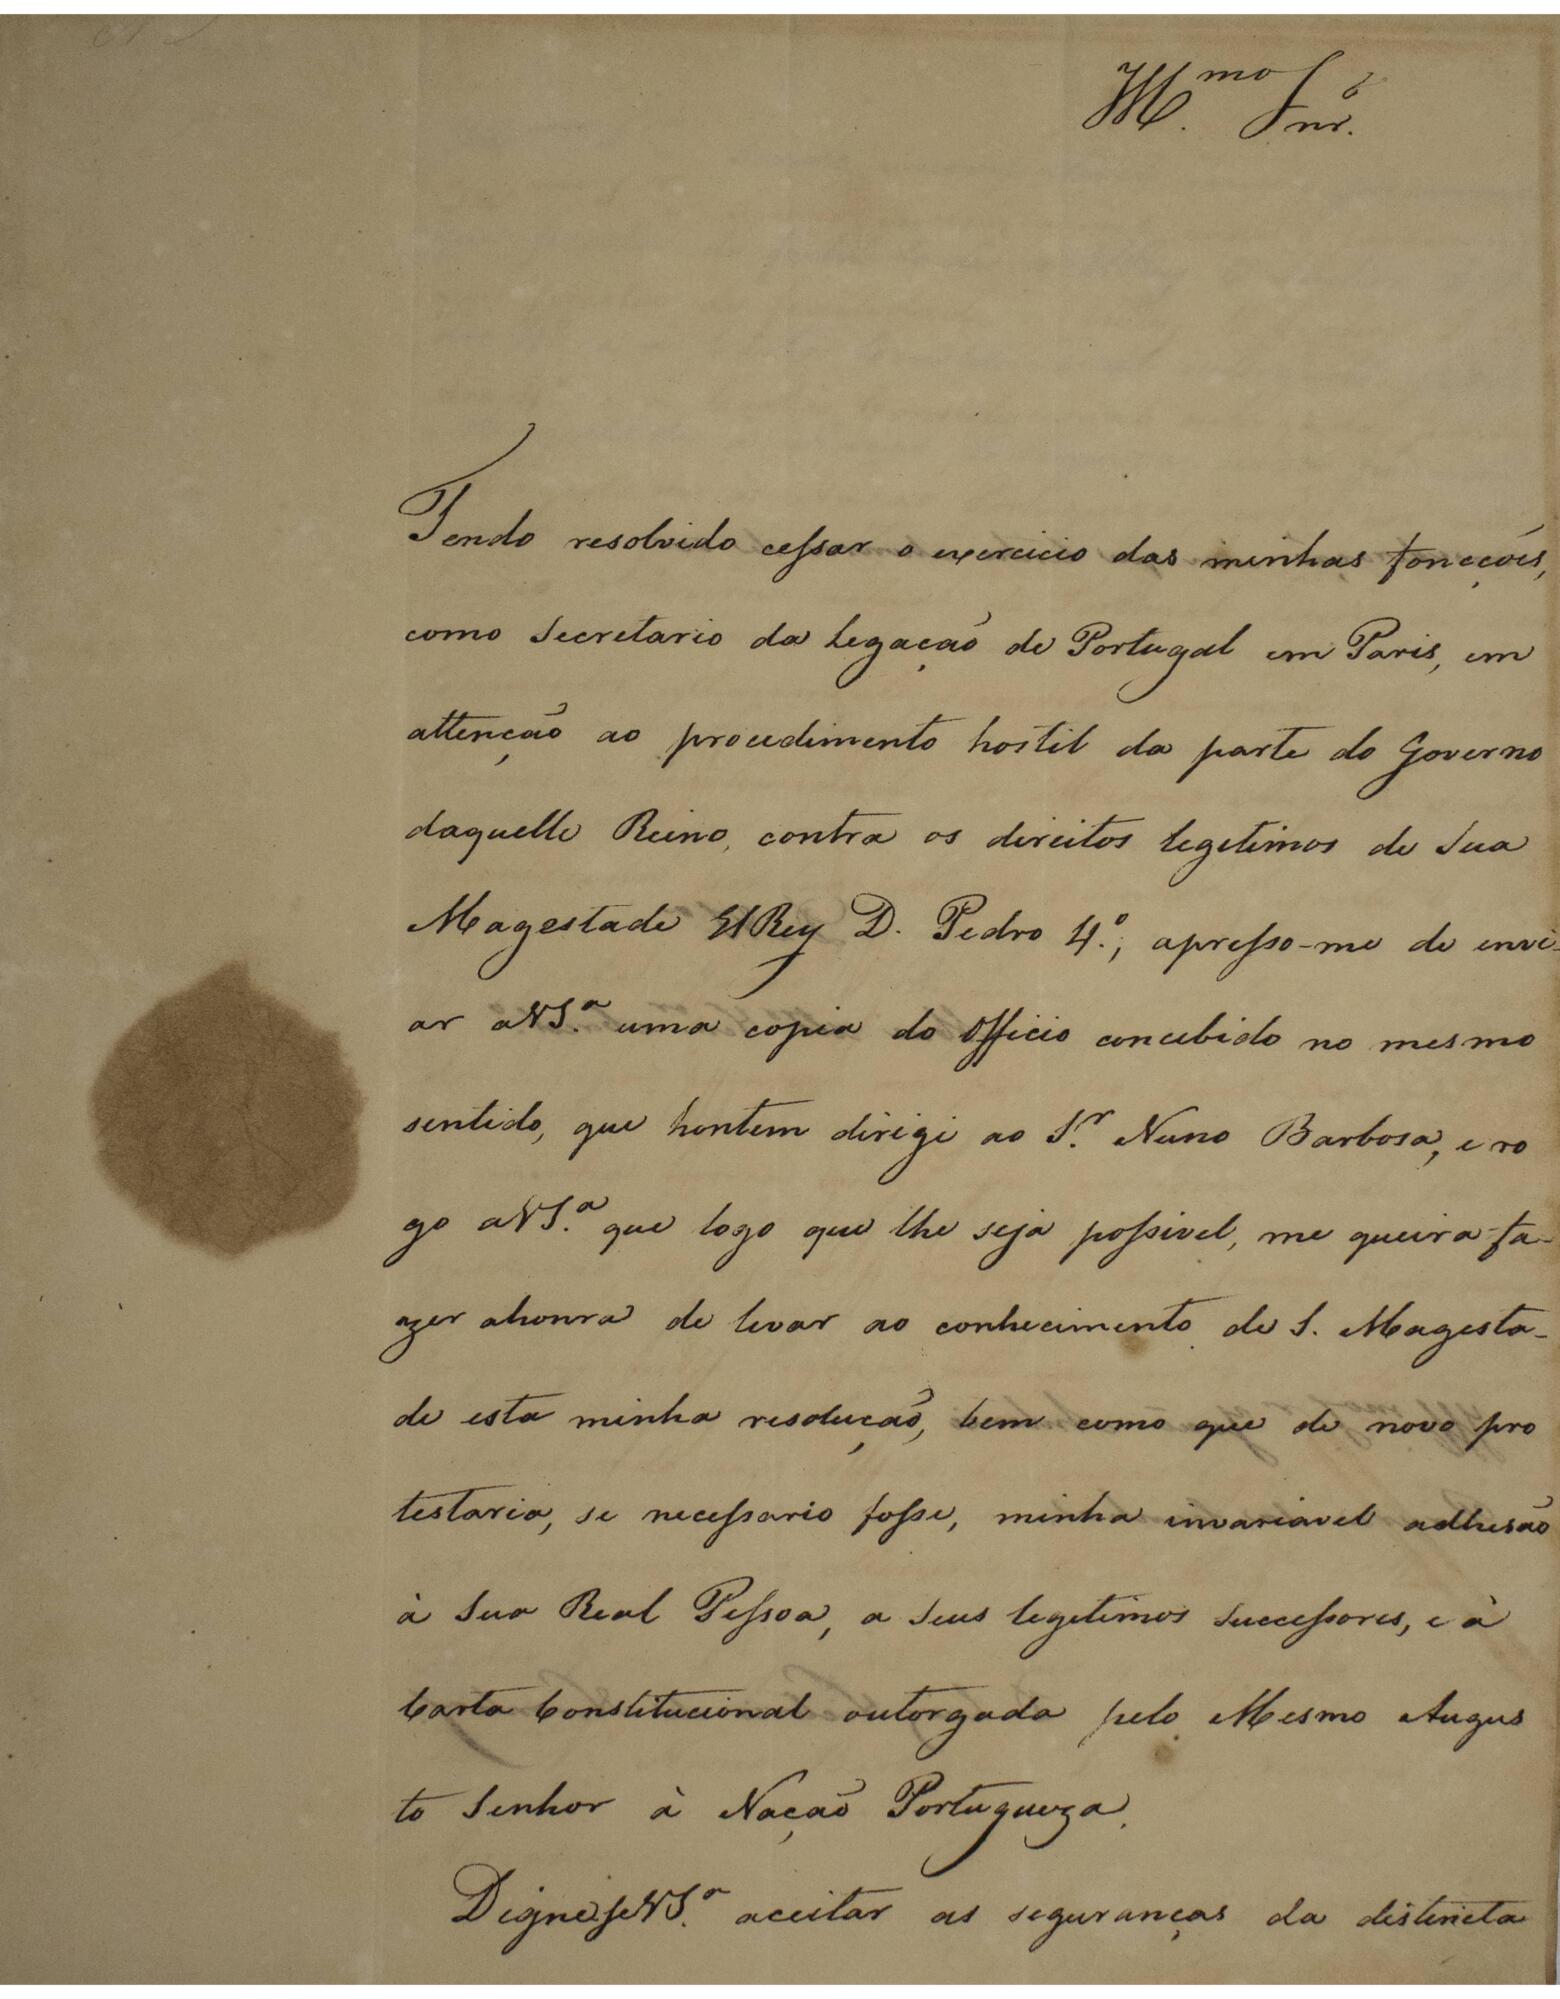 Ill.mo Snr.
Tendo resolvido cessar o exercicio das minhas foncções,
como Secretario da Legação de Portugal em Paris, em
attenção ao procedimento hostil da parte do Governo
daquelle Reino, contra os direitos legitimos de Sua
Magestade ElRey D. Pedro 4.º, apresso-me de envi-
ar a VS.ª uma copia do Officio concebido no mesmo
sentido, que hontem dirigi ao S.r Nuno Barbosa, e ro
go a VS.ª que logo que lhe seja possivel, me queira fa-
zer a honra de levar ao conhecimento de S. Magesta-
de esta minha resolução, bem como que de novo pro
testaria, se necessario fosse, minha invariavel adhesão
à Sua Real Pessoa, a Seus legitimos Successores, e à
Carta Constitucional outorgada pelo Mesmo Augus
to Senhor à Nação Portugueza.
Digne se VS.ª aceitar as seguranças da distincta